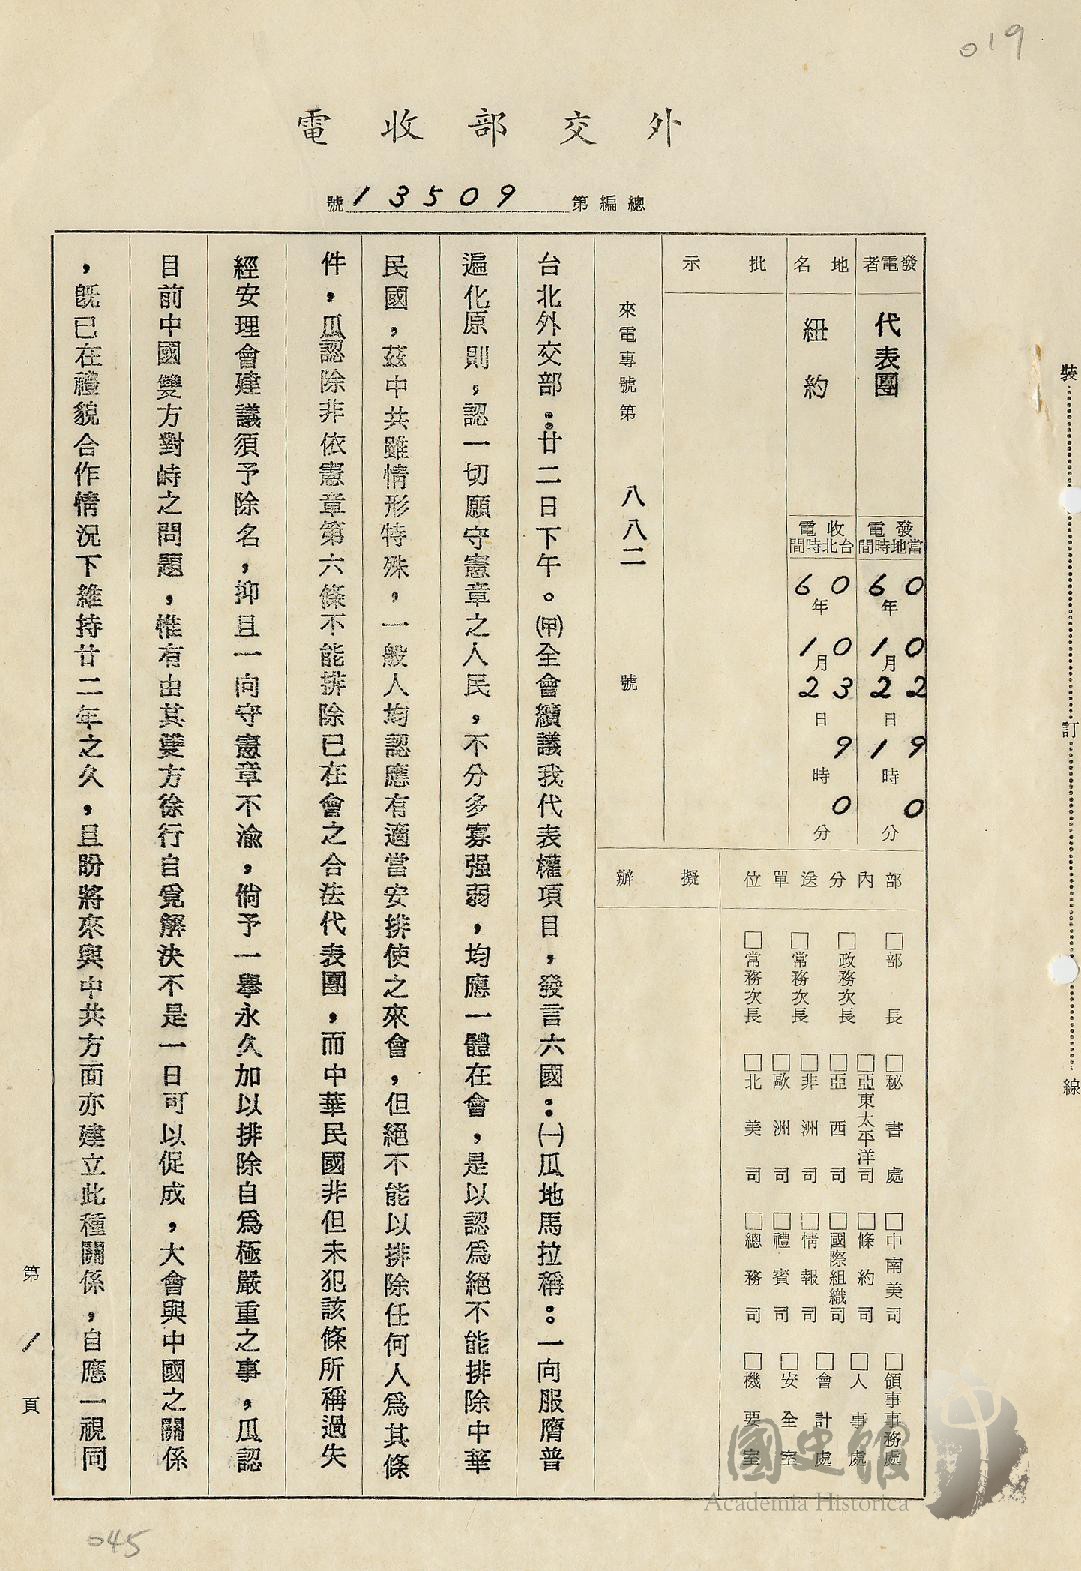 019
外交部收電
總編第13509號
發電者
代表團
地名
紐約
發電
當地時間
60年
10月
22日
19時
0分
收電
台北時間
60年
10月
23日
9時
0分
批示
來電專號第 八八二 號
部內分送單位
□部長
□政務次長
□常務次長
□常務次長
□秘書處
□亞東太平洋司
□亞西司
□非洲司
□歐洲司
□北美司
□中南美司
□條約司
□國際組織司
□情報司
□禮賓司
□總務司
□領事事務處
□人事處
□會計處
□安全室
□機要室
擬辦
台北外交部：廿二日下午。㈙全會續議我代表權項目，發言六國：㈠瓜地馬拉稱：一向服膺普
遍化原則，認一切願守憲章之人民，不分多寡强弱，均應一體在會，是以認爲絕不能排除中華
民國，茲中共雖情形特殊，一般人均認應有適當安排使之來會，但絕不能以排除任何人爲其條
件，瓜認除非依憲章第六條不能排除已在會之合法代表團，而中華民國非但未犯該條所稱過失
經安理會建議須予除名，抑且一向守憲章不渝，倘予一舉永久加以排除自爲極嚴重之事，瓜認
目前中國雙方對峙之問題，惟有由其雙方徐行自覓解決不是一日可以促成，大會與中國之關係
，旣已在禮貌合作情況下維持廿二年之久，且盼將來與中共方面亦建立此種關係，自應一視同
裝
訂
線
第1頁
045
國史館
Academia Historica